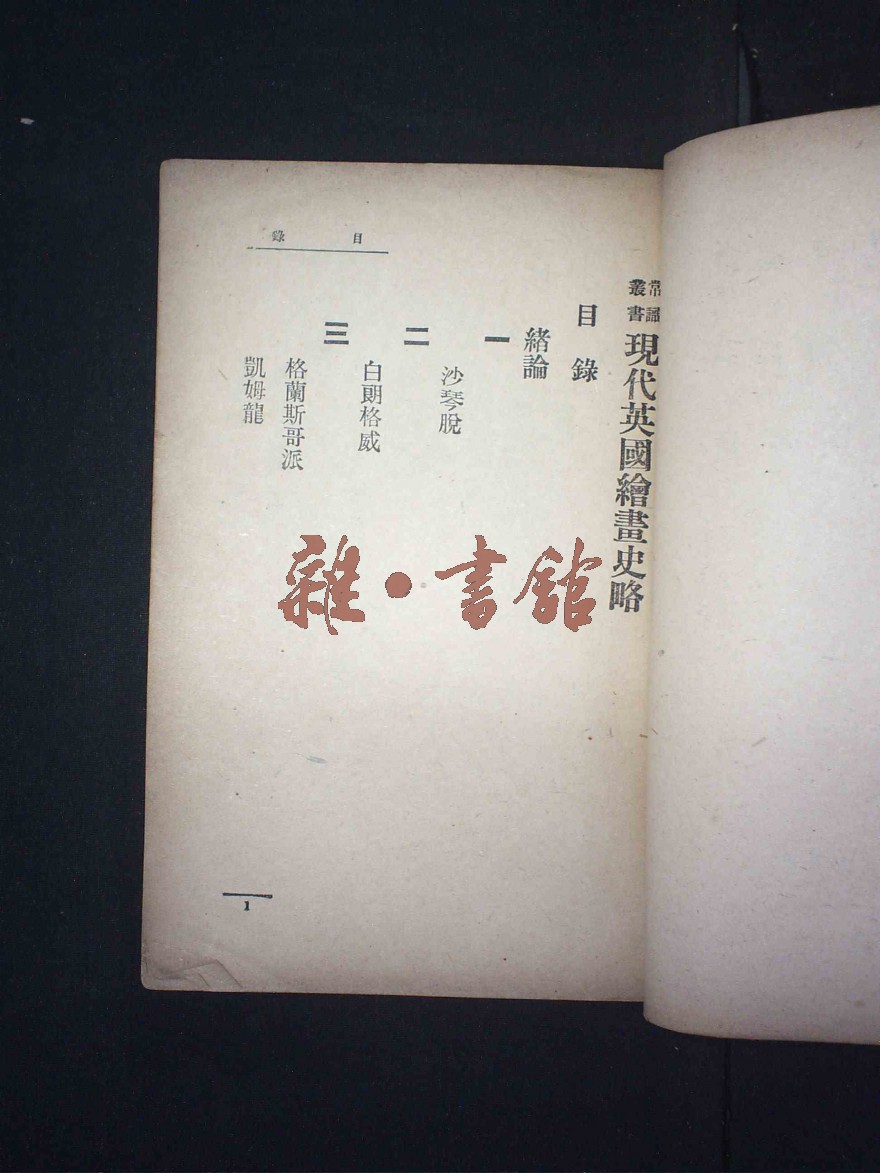 常識
叢書
現代英國繪畫史略
目錄
緒論
一
沙琴脫
二
白朗格威
三
格蘭斯哥派
凱姆龍
目錄
1
雜·書館